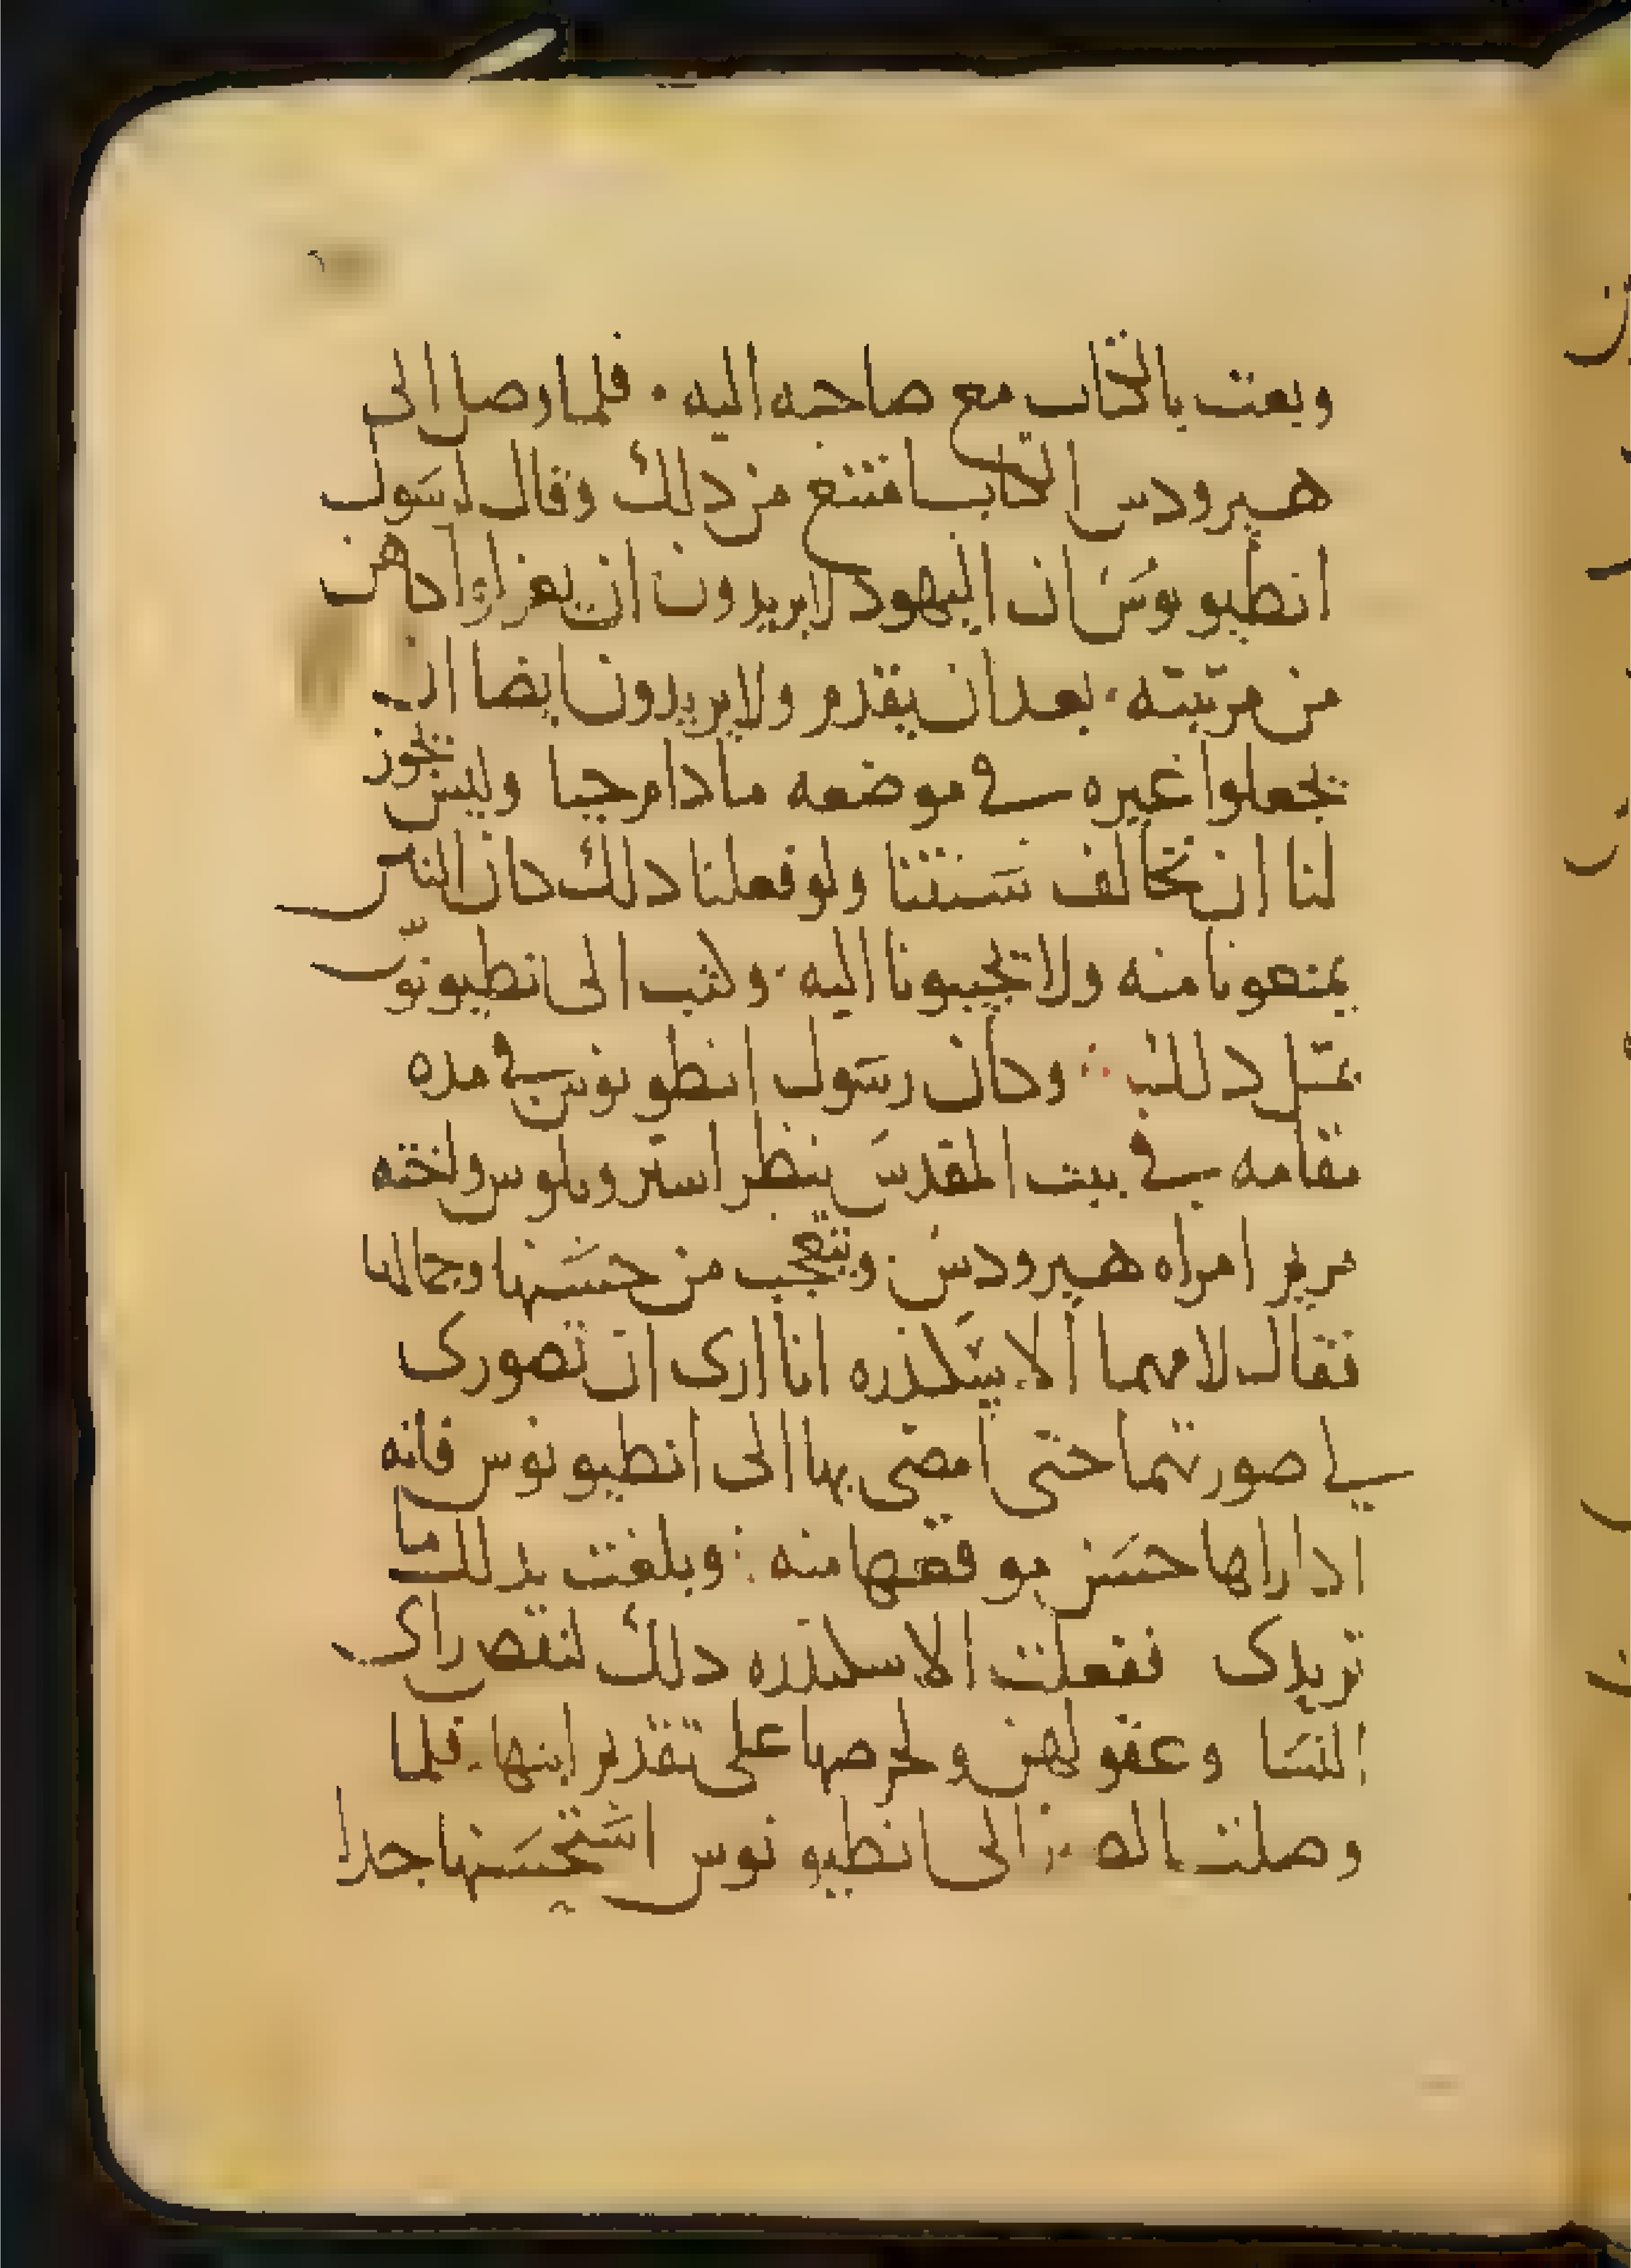 وبعت بالكتاب مع صاحبه اليه ٠ فلما وصل الى
هيرودس الكتاب امتنع من ذلك وقال لرسول
انطيونوس ان اليهود لا يريدون ان يعزلوا كاهن
من مرتبته ٠ بعد ان يقدم ولا يريدون ايضا ان
يجعلوا غيره في موضعه ما دام حيا وليس يجوز
لنا ان نخالف سنتنا ولو فعلنا ذلك كان الناس
يمنعونا منه ولا يجيبونا اليه ٠ وكتب الى انطيونوس
بمثل ذلك ∴ وكان رسول انطونيوس في مده
مقامه في بيت المقدس ينظر استروبلوس واخته
مريم امراه هيرودس ويتعجب من حسنها وجمالها
فقال لامهما الاسكندره انا ارى ان تصورى
لي صورتهما حتى امضى بها الى انطيونوس فانه
اذا راها حسن موقعها منه : وبلغت بذلك ما
تريدى ففعلت الاسكندره ذلك لنقص راى
النسا وعقولهن ولحرصها على تقديم ابنها ٠ فلما
وصلت الصور الى انطيونوس استحسنها جدا